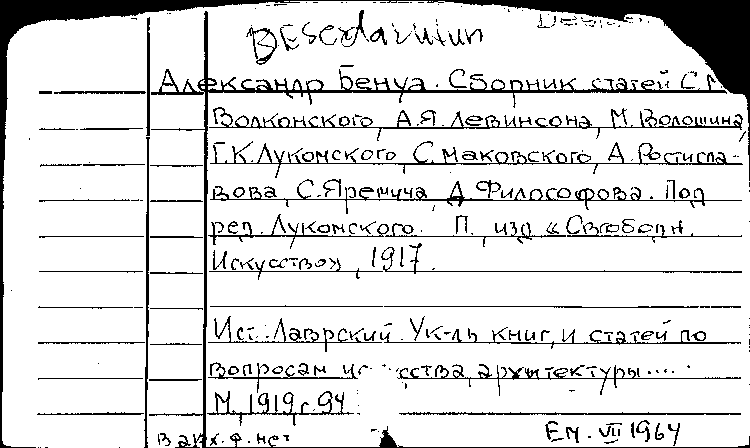 Desiderатит
Александр Бенуа. Сборник статей С.М
Волконского, А.Я.Левинсона, М.Волошина,
Г.К.Лукомского, С.Маковского, А.Ростисла-
вова, С.Яремича, Д.Философова. Под
ред. Лукомского. П., изд «Свободн.
Искусство», 1917.
Ист.: Лаврский. Ук-ль книг, и статей по
вопросам ис сства, архитектуры....
М., 1919, с. 94
В алф. ф. нет
Ем. VII 1964